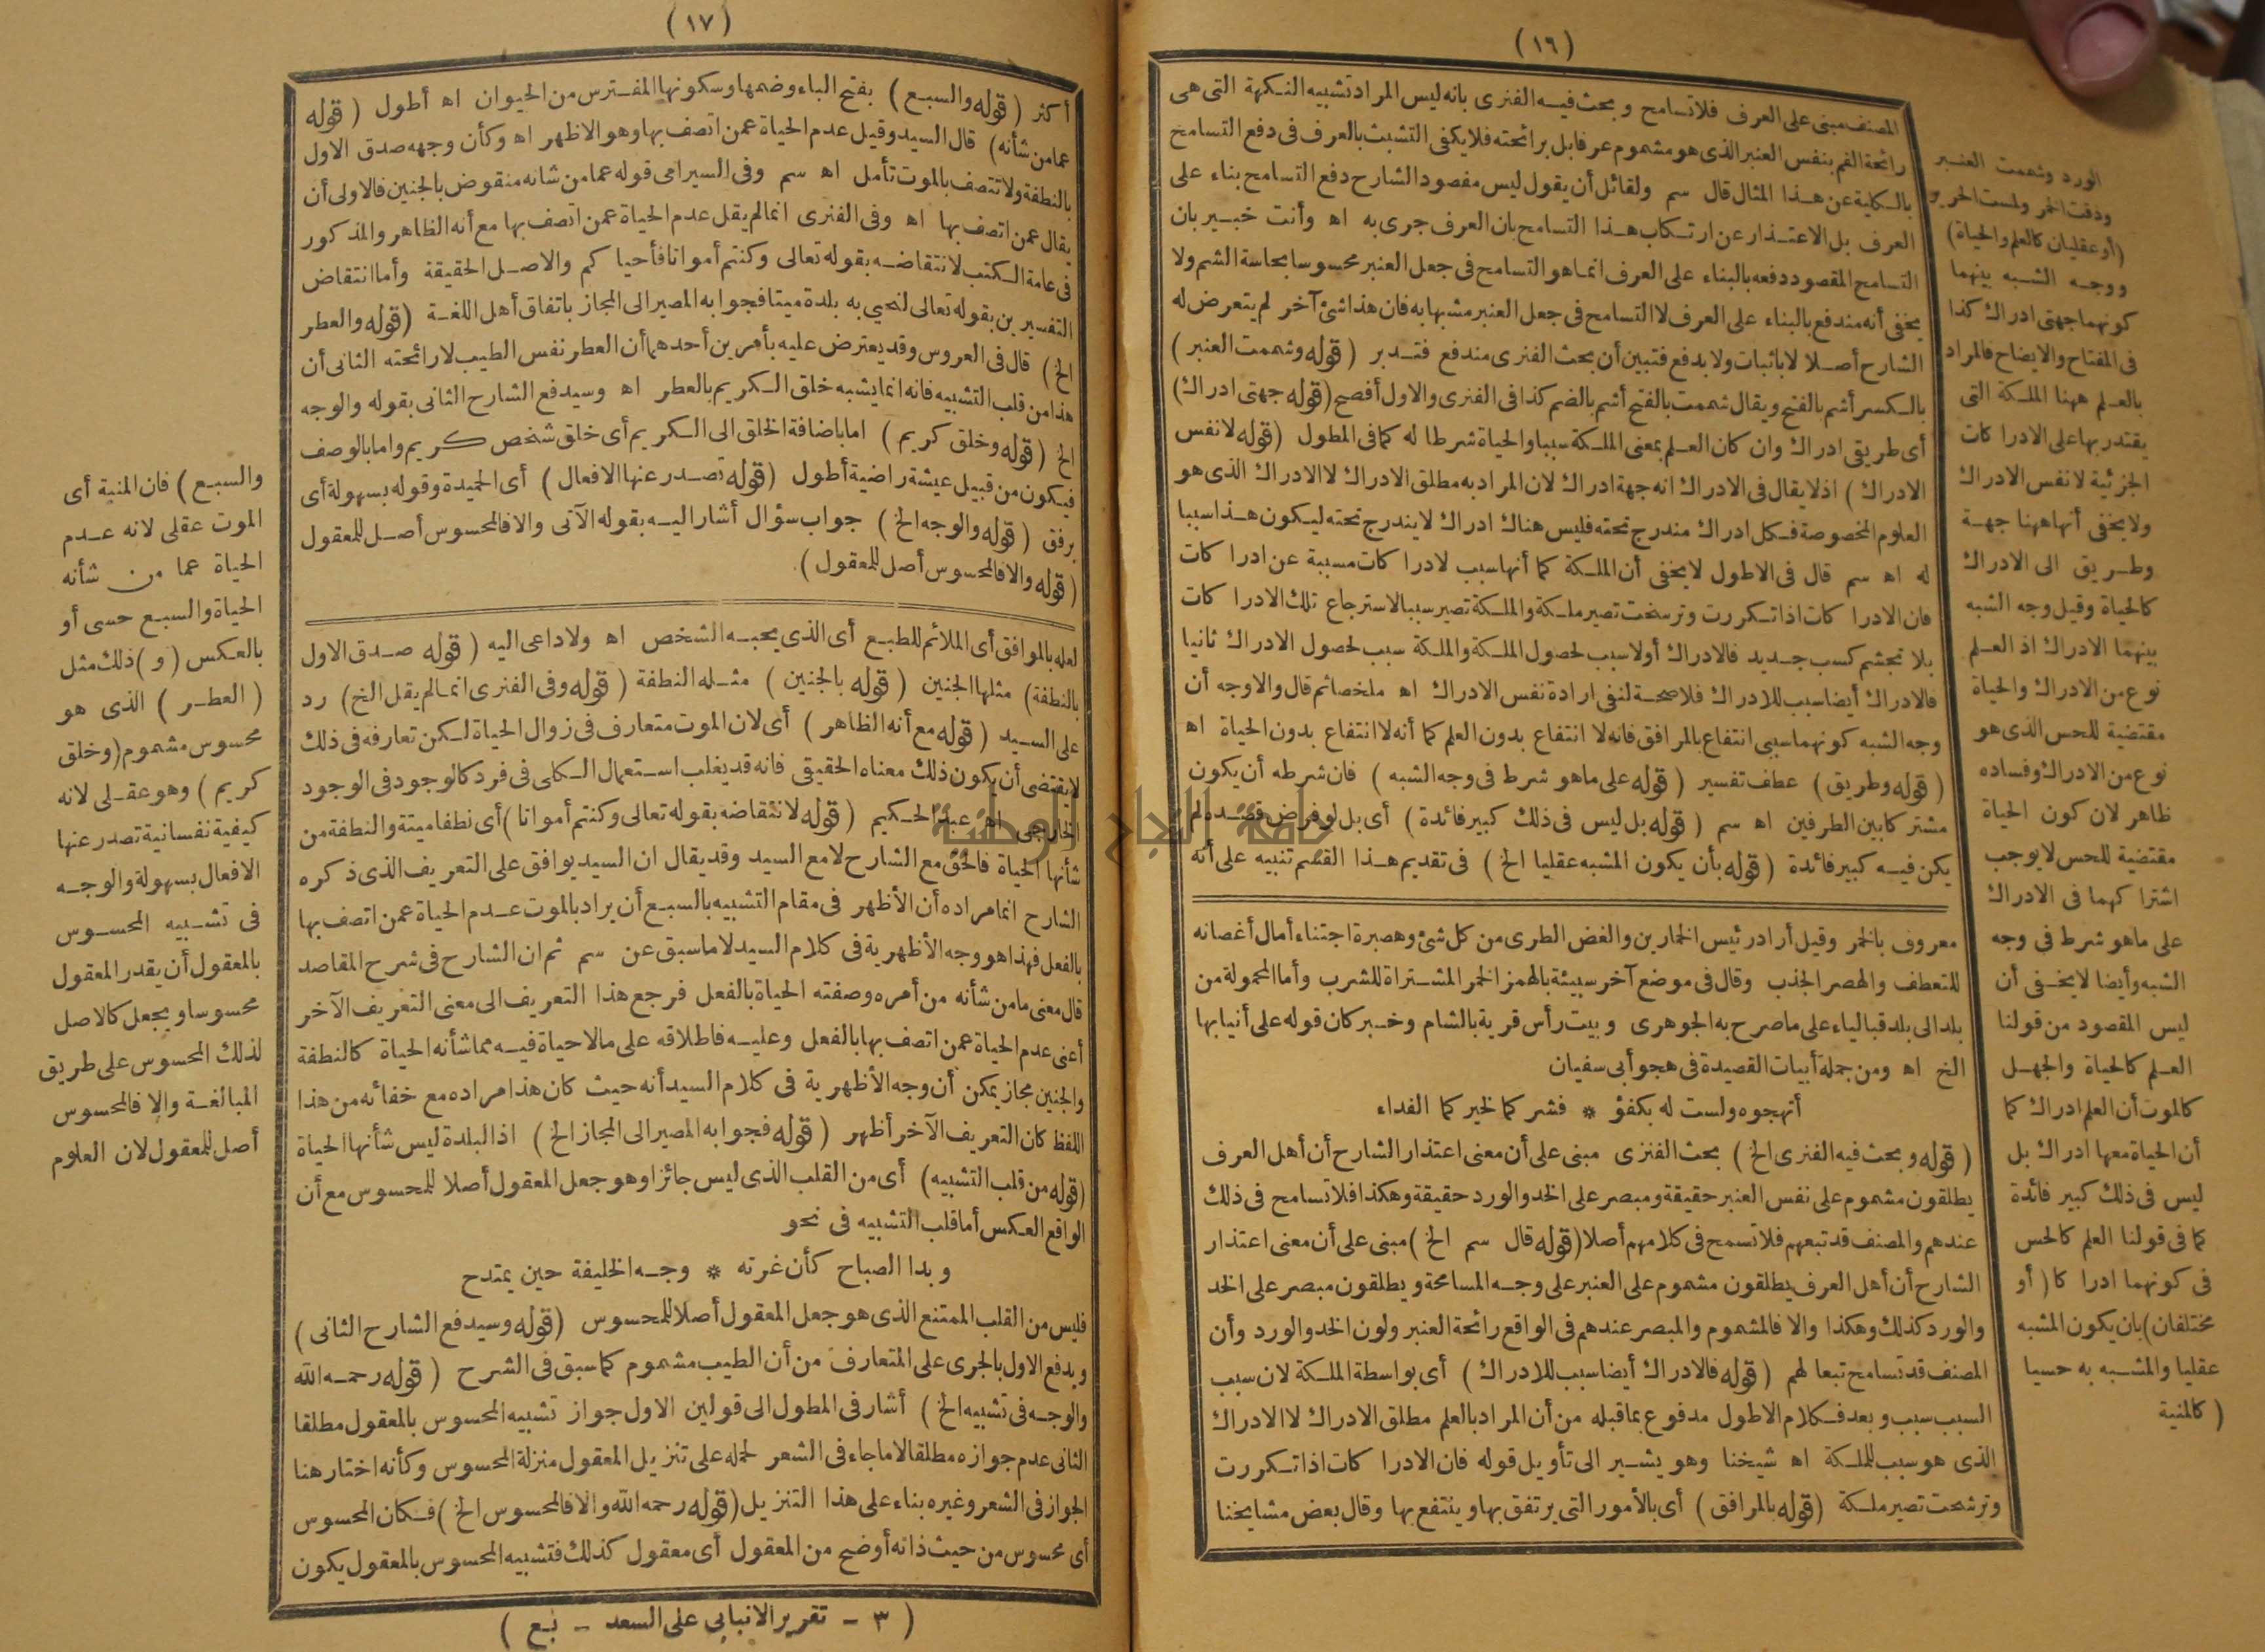 (١٦)
المصنف مبنى على العرف فلا تسامح وبحث فيه الفنرى بانه ليس المراد تشبيه النكهة التى هى
رائحة الفم بنفس العنبر الذى هو مشموم عرفا بل برائحته فلا يكفى التشبث بالعرف فى دفع التسامح
بالكلية عن هذا المثال قال سم ولقائل أن يقول ليس مقصود الشارح دفع التسامح بناء على
العرف بل الاعتذار عن ارتكاب هذا التسامح بان العرف جرى به اه وأنت خبير بان
التسامح المقصود دفعه بالبناء على العرف انما هو التسامح فى جعل العنبر محسوسا بحاسة الشم ولا
يخفى أنه مندفع بالبناء على العرف لا التسامح فى جعل العنبر مشبها به فان هذا شئ آخر لم يتعرض له
الشارح أصلا لا باثبات ولا بدفع فتبين أن بحث الفنرى مندفع فتدبر (قوله وشممت العنبر)
بالكسر أشم بالفتح ويقال شممت بالفتح أشم بالضم كذا فى الفنرى والاول أفصح (قوله جهتى ادراك)
أى طريقى ادراك وان كان العلم بمعنى الملكة سببا والحياة شرطا له كما فى المطول (قوله لا نفس
الادراك) اذ لا يقال فى الادراك انه جهة ادراك لان المراد به مطلق الادراك لا الادراك الذى هو
العلوم المخصوصة فكل ادراك مندرج تحته فليس هناك ادراك لا يندرج تحته ليكون هذا سببا
له اه سم قال فى الاطول لا يخفى أن الملكة كما أنها سبب لادراكات مسببة عن ادراكات
فان الادراكات اذا تكررت وترسخت تصير ملكة والملكة تصير سببا لاسترجاع تلك الادراكات
بلا تجشم كسب جديد فالادراك أولا سبب لحصول الملكة والملكة سبب لحصول الادراك ثانيا
فالادراك أيضا سبب للادراك فلا صحة لنفى ارادة نفس الادراك اه ملخصا ثم قال والاوجه أن
وجه الشبه كونهما سببى انتفاع بالمرافق فانه لا انتفاع بدون العلم كما أنه لا انتفاع بدون الحياة اه
(قوله وطريق) عطف تفسير (قوله على ما هو شرط فى وجه الشبه) فان شرطه أن يكون
مشتركا بين الطرفين اه سم (قوله بل ليس فى ذلك كبير فائدة) أى بل لو فرض قصده لم
يكن فيه كبير فائدة (قوله بأن يكون المشبه عقليا الخ) فى تقديم هذا القسم تنبيه على أنه
معروف بالخمر وقيل أراد رئيس الخمارين والغض الطرى من كل شئ وهصرة اجتناء أمال أغصانه
للتعطف والهصر الجذب وقال فى موضع آخر سبيئة بالهمز الخمر المشتراة للشرب وأما المحمولة من
بلد الى بلد قبالياء على ما صرح به الجوهرى وبيت رأس قرية بالشام وخبر كان قوله على أنيابها
الخ اه ومن جملة أبيات القصيدة فى هجو أبى سفيان
أتهجوه ولست له بكفؤ * فشركما لخيركما الفداء
(قوله وبحث فيه الفنرى الخ) بحث الفنرى مبنى على أن معنى اعتذار الشارح أن أهل العرف
يطلقون مشموم على نفس العنبر حقيقة ومبصر على الخد والورد حقيقة وهكذا فلا تسامح فى ذلك
عندهم والمصنف قد تبعهم فلا تسمح فى كلامهم أصلا (قوله قال سم الخ) مبنى على أن معنى اعتذار
الشارح أن أهل العرف يطلقون مشموم على العنبر على وجه المسامحة ويطلقون مبصر على الخد
والورد كذلك وهكذا والا فالمشموم والمبصر عندهم فى الواقع رائحة العنبر ولون الخد والورد وأن
المصنف قد تسامح تبعا لهم (قوله فالادراك أيضا سبب للادراك) أى بواسطة الملكة لان سبب
السبب سبب وبعد فكلام الاطول مدفوع بما قبله من أن المراد بالعلم مطلق الادراك لا الادراك
الذى هو سبب للملكة اه شيخنا وهو يشير الى تأويل قوله فان الادراكات اذا تكررت
وترشحت تصير ملكة (قوله بالمرافق) أى بالأمور التى يرتفق بها وينتفع بها وقال بعض مشايخنا
الورد وشممت العنبر
وذقت الخمر ولمست الحرير
(أو عقليان كالعلم والحياة)
ووجه الشبه بينهما
كونهما جهتى ادراك كذا
فى المفتاح والايضاح فالمراد
بالعلم ههنا الملكة التى
يقتدر بها على الادراكات
الجزئية لا نفس الادراك
ولا يخفى أنها ههنا جهة
وطريق الى الادراك
كالحياة وقيل وجه الشبه
بينهما الادراك اذ العلم
نوع من الادراك والحياة
مقتضية للحس الذى هو
نوع من الادراك وفساده
ظاهر لان كون الحياة
مقتضية للحس لا يوجب
اشتراكهما فى الادراك
على ما هو شرط فى وجه
الشبه وأيضا لا يخفى أن
ليس المقصود من قولنا
العلم كالحياة والجهل
كالموت أن العلم ادراك كما
أن الحياة معها ادراك بل
ليس فى ذلك كبير فائدة
كما فى قولنا العلم كالحس
فى كونهما ادراكا (أو
مختلفان) بان يكون المشبه
عقليا والمشبه به حسيا
(كالمنية
(١٧)
أكثر (قوله والسبع) بفتح الباء وضمها وسكونها المفترس من الحيوان اه أطول (قوله
عما من شأنه) قال السيد وقيل عدم الحياة عمن اتصف بها وهو الاظهر اه وكأن وجهه صدق الاول
بالنطفة ولا تتصف بالموت تأمل اه سم وفى السيرامى قوله عما من شانه منقوض بالجنين فالاولى أن
يقال عمن اتصف بها اه وفى الفنرى انما لم يقل عدم الحياة عمن اتصف بها مع أنه الظاهر والمذكور
فى عامة الكتب لانتقاضه بقوله تعالى وكنتم أمواتا فأحياكم والاصل الحقيقة وأما انتقاض
التفسيرين بقوله تعالى لنحيي به بلدة ميتا فجوابه المصير الى المجاز باتفاق أهل اللغة (قوله والعطر
الخ) قال فى العروس وقد يعترض عليه بأمرين أحدهما أن العطر نفس الطيب لا رائحته الثانى أن
هذا من قلب التشبيه فانه انما يشبه خلق الكريم بالعطر اه وسيدفع الشارح الثانى بقوله والوجه
الخ (قوله وخلق كريم) اما باضافة الخلق الى الكريم أى خلق شخص كريم واما بالوصف
فيكون من قبيل عيشة راضية أطول (قوله تصدر عنها الافعال) أى الحميدة وقوله بسهولة أى
برفق (قوله والوجه الخ) جواب سؤال أشار اليه بقوله الآتى والا فالمحسوس أصل للمعقول
(قوله والا فالمحسوس أصل للمعقول).
لعله بالموافق أى الملائم للطبع أى الذى يحبه الشخص اه ولا داعى اليه (قوله صدق الاول
بالنطفة) مثلها الجنين (قوله بالجنين) مثله النطفة (قوله وفى الفنرى انما لم يقل الخ) رد
على السيد (قوله مع أنه الظاهر) أى لان الموت متعارف فى زوال الحياة لكن تعارفه فى ذلك
لا يقتضى أن يكون ذلك معناه الحقيقى فانه قد يغلب استعمال الكلى فى فرد كالوجود فى الوجود
الخارجى اه عبد الحكيم (قوله لانتقاضه بقوله تعالى وكنتم أمواتا) أى نطفا ميتة والنطفة من
شأنها الحياة فالحق مع الشارح لا مع السيد وقد يقال ان السيد يوافق على التعريف الذى ذكره
الشارح انما مراده أن الأظهر فى مقام التشبيه بالسبع أن يراد بالموت عدم الحياة عمن اتصف بها
بالفعل فهذا هو وجه الأظهرية فى كلام السيد لا ما سبق عن سم ثم ان الشارح فى شرح المقاصد
قال معنى ما من شأنه من أمره وصفته الحياة بالفعل فرجع هذا التعريف الى معنى التعريف الآخر
أعنى عدم الحياة عمن اتصف بها بالفعل وعليه فاطلاقه على ما لا حياة فيه مما شأنه الحياة كالنطفة
والجنين مجاز يمكن أن وجه الأظهرية فى كلام السيد أنه حيث كان هذا مراده مع خفائه من هذا
اللفظ كان التعريف الآخر أظهر (قوله فجوابه المصير الى المجاز الخ) اذ البلدة ليس شأنها الحياة
(قوله من قلب التشبيه) أى من القلب الذى ليس جائزا وهو جعل المعقول أصلا للمحسوس مع أن
الواقع العكس أما قلب التشبيه فى نحو
وبدا الصباح كأن غرته * وجه الخليفة حين يمتدح
فليس من القلب الممتنع الذى هو جعل المعقول أصلا للمحسوس (قوله وسيدفع الشارح الثانى)
ويدفع الاول بالجرى على المتعارف من أن الطيب مشموم كما سبق فى الشرح (قوله رحمه الله
والوجه فى تشبيه الخ) أشار فى المطول الى قولين الاول جواز تشبيه المحسوس بالمعقول مطلقا
الثانى عدم جوازه مطلقا الا ما جاء فى الشعر لحمله على تنزيل المعقول منزلة المحسوس وكأنه اختار هنا
الجواز فى الشعر وغيره بناء على هذا التنزيل (قوله رحمه الله والا فالمحسوس الخ) فكان المحسوس
أى محسوس من حيث ذاته أوضح من المعقول أى معقول كذلك فتشبيه المحسوس بالمعقول يكون
(٣ - تقرير الانبابى على السعد - بع)
والسبع) فان المنية أى
الموت عقلى لانه عدم
الحياة عما من شأنه
الحياة والسبع حسى أو
بالعكس (و) ذلك مثل
(العطر) الذى هو
محسوس مشموم (وخلق
كريم) وهو عقلى لانه
كيفية نفسانية تصدر عنها
الافعال بسهولة والوجه
فى تشبيه المحسوس
بالمعقول أن يقدر المعقول
محسوسا ويجعل كالاصل
لذلك المحسوس على طريق
المبالغة والا فالمحسوس
أصل للمعقول لان العلوم
جامعة النجاح الوطنية